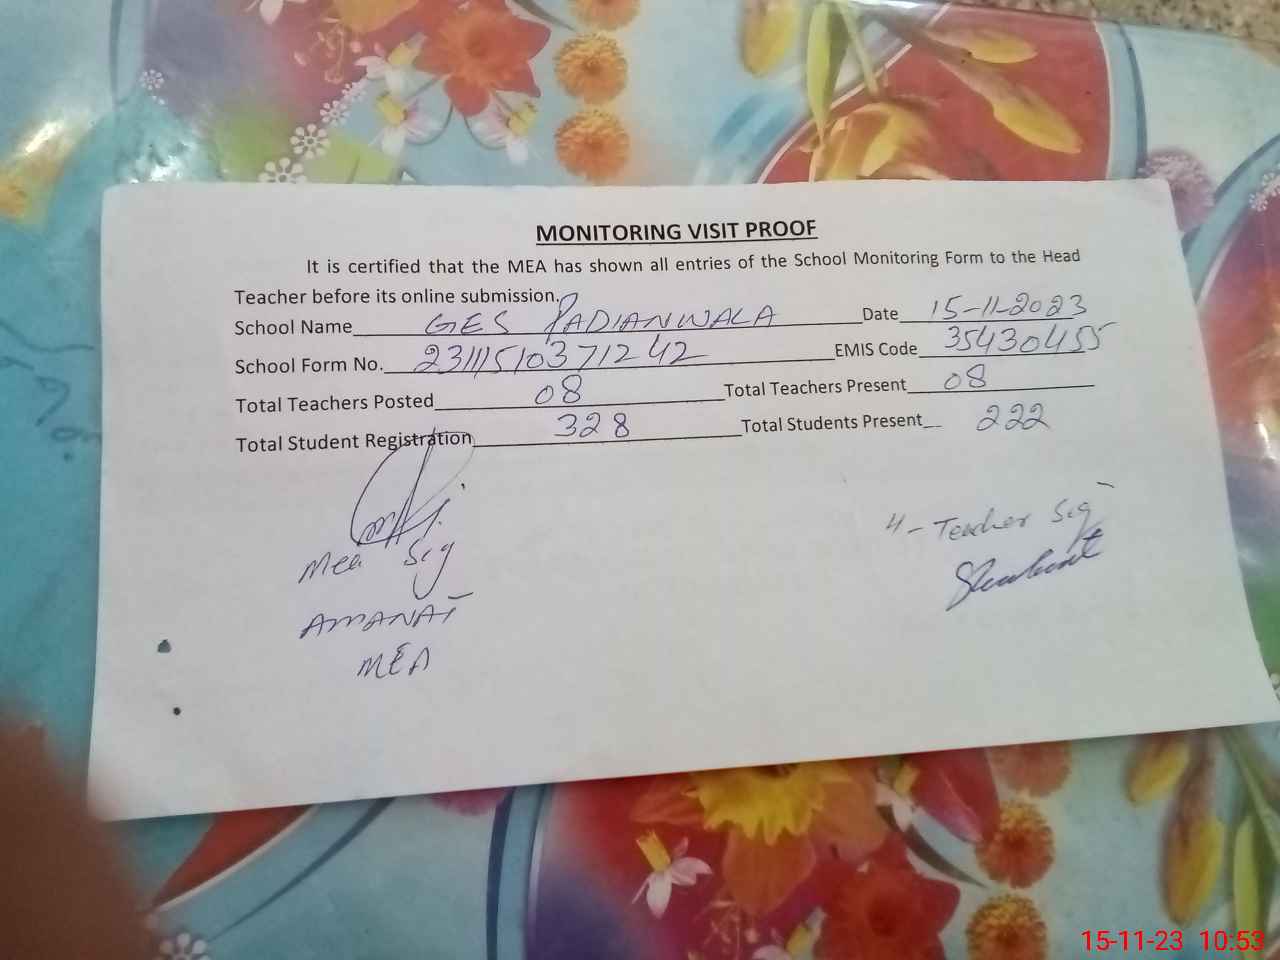 MONITORING VISIT PROOF
It is certified that the MEA has shown all entries of the School Monitoring Form to the Head
Teacher before its online submission.
School Name GES PADIANWALA Date 15-11-2023
School Form No. 23111510371242 EMIS Code 35430455
Total Teachers Posted 08 Total Teachers Present 08
Total Student Registration 328 Total Students Present 222
Mea Sig
H-Teacher Sig
AMANAT
MEA
15-11-23 10:53